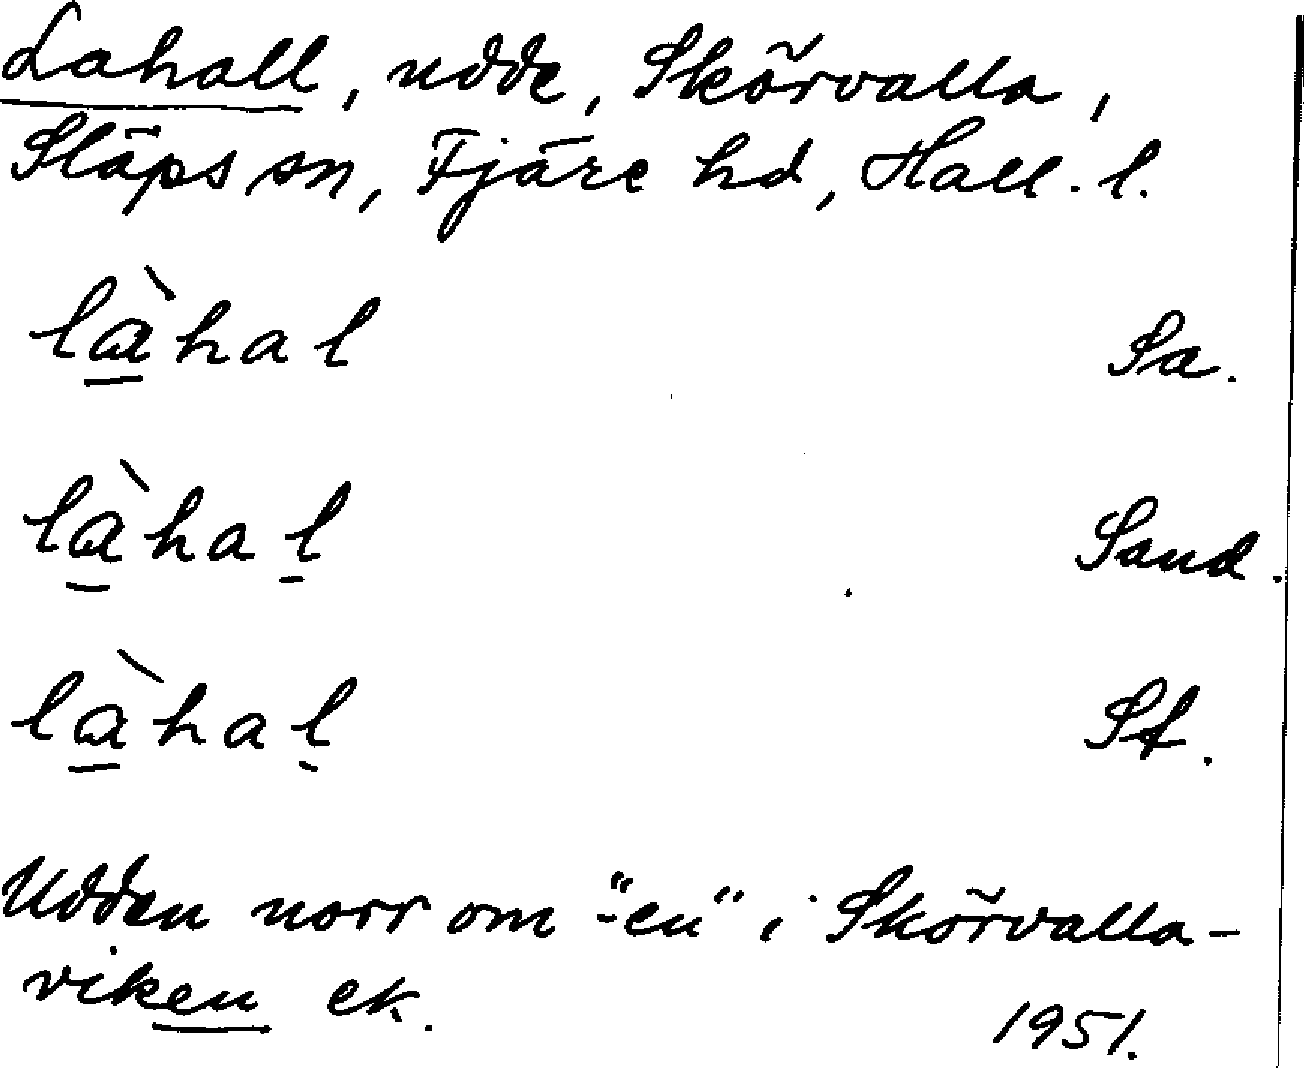 Lahall, udde, Skörvalla,
Släps sn, Fjäre hd, Hall. l.
là̱hal Sa.
là̱hal̠ Sand.
là̱hal̠ Sf.
Udden norr om "-en" i Skörvalla-
viken ek.
1951.